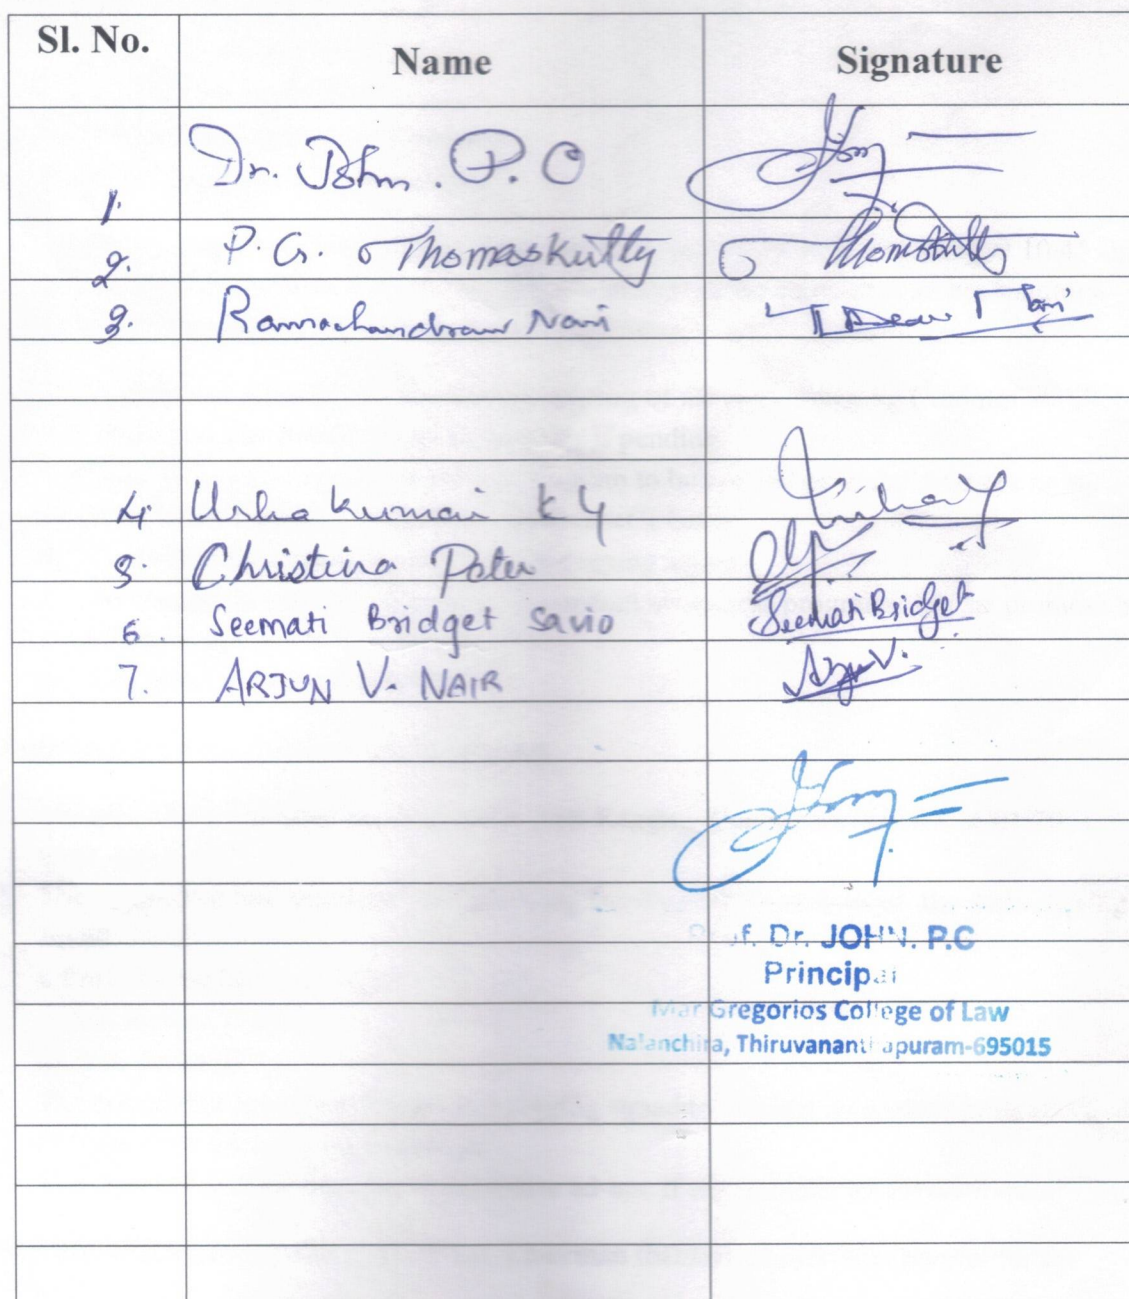 Sl. No. Name Signature
1. Dr. John. P. C
2. P. G. Thomaskutty Thomaskutty
3. Ramachandran Nair
4. Usha Kumari K Y
5. Christina Peter
6. Seemati Bridget Savio Seemati Bridget
7. ARJUN V. NAIR Arjun V.
Prof. Dr. JOHN. P.C
Principal
Mar Gregorios College of Law
Nalanchira, Thiruvananthapuram-695015